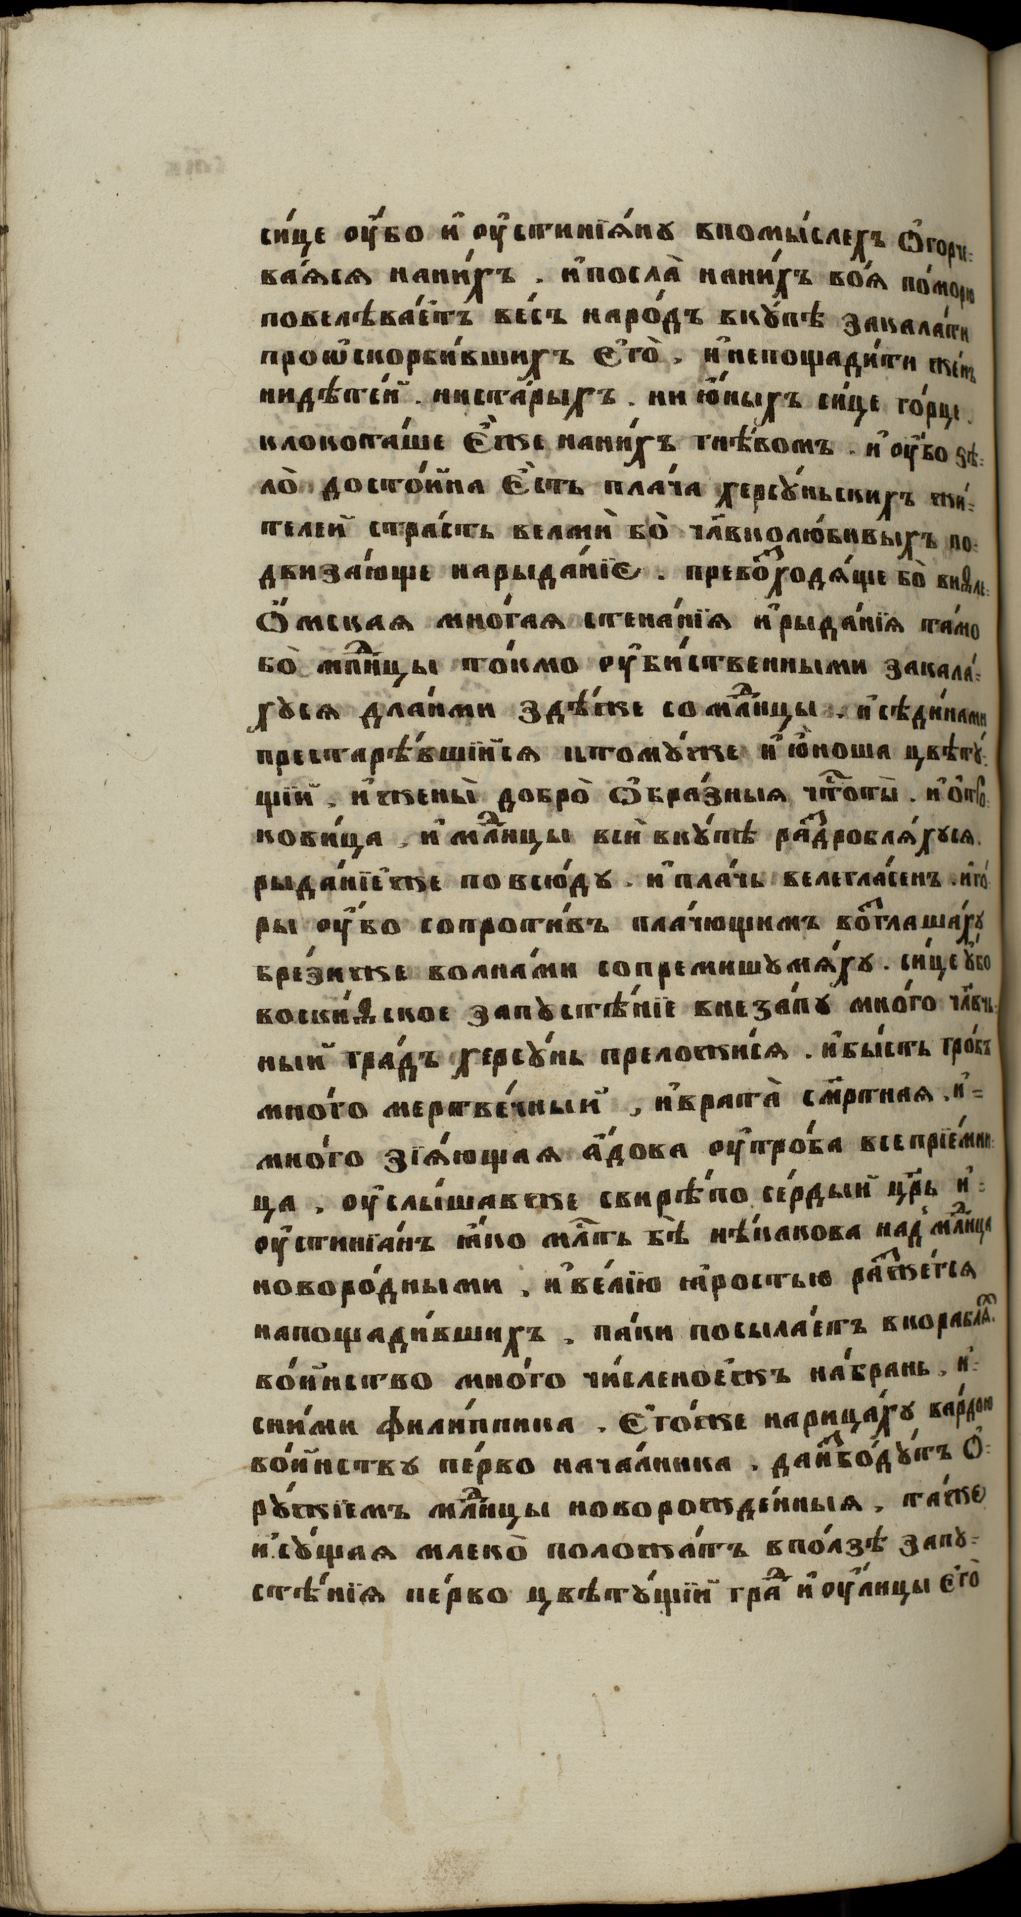 си́це ᲂу҆́бо и҆ ᲂу҆стинїѧ́нꙋ впомы́слехъ ѡ҆горче-
ва́ѧсѧ нани́хъ . и҆посла̀ нани́хъ во́ѧ по́морю
повелѣва́етъ ве́сь наро́дъ вкꙋ́пѣ закала́ти
проѡ҆скорби́вшихъ є҆го̀ , и҆непощади́ти же́нъ
нидѣте́й . ниста́рыхъ . ни ю҆́ныхъ си́це го́рце .
клокота́ше є҆́же нани́хъ гнѣ́вомъ . и҆ ᲂу҆́бо ѕѣ-
ло̀ досто́йна є҆́сть пла́ча херсꙋ́ньскихъ жи́-
телей стра́сть велмѝ бо̀ чл҃вколю́бивыхъ по-
двиза́юще нарыда́нїе . превоⷥходѧ́ще бо̀ виѳле-
ѻ҆́мскаѧ мно́гаѧ стена́нїѧ и҆рыда́нїѧ та́мо
бо̀ млⷣнцы то́кмо ᲂу҆би́ственными закала́-
хꙋсѧ дла́нми здѣ́же со млⷣнцы . и҆сѣди́нами
престарѣ́вшїйсѧ ктомꙋ́же и҆ ю҆́ноша цвѣтꙋ́-
щїй , и҆же́ны̀ добро̀ ѻ҆бра́зныѧ чⷭ҇тоты̀ . и҆ѻ҆тро-
кови́ца , и҆ млⷣнцы всѝ вкꙋ́пѣ раⷥдроблѧ́хꙋсѧ .
рыда́нїеже повсю́дꙋ . и҆пла́чь велегла́сенъ . и҆го́-
ры ᲂу҆́бо сопроти́въ пла́чющимъ воⷥглаша́хꙋ
бре́зиже волна́ми сопремишꙋмѧ́хꙋ . си́це ᲂу҆́бо
воски́ѳское запꙋстѣ́нїе внеза́пꙋ мно́го чл҃вч-
ный гра́дъ херсꙋ́нь преложи́сѧ . и҆бы́сть гро́бъ
мно́го мертве́чный , и҆врата̀ см҃ртнаѧ . и҆-
мно́го зїѧ́ющаѧ а҆́дова ᲂу҆тро́ба всепрїе́мни-
ца , ᲂу҆слы́шавже свирѣ́по се́рдый цр҃ь и҆-
ᲂу҆стинїа́нъ ꙗ҆́ко млⷭ҇ть бѣ̀ нѣ́какова надмлⷣнца
новоро́дными , и҆ве́лїю ꙗ҆́ростью раⷥже́гсѧ
напощади́вшихъ , па́ки посыла́етъ вкораблѧ́ⷯ .
во́йнство мно́го чи́сленоежъ на́брань . и҆-
сни́ми фили́ппика , є҆го́же нарица́хꙋ ва́рдою
во́йнствꙋ пе́рво нача́лника . дай́ⷥбо́дꙋтъ ѻ҆-
рꙋ́жїемъ млⷣнцы новорожде́нныѧ , та́кже
и҆сꙋ́щаѧ млеко̀ положа́тъ впо́лзѣ запꙋ-
стѣ́нїѧ пе́рво цвѣтꙋ́щїй граⷣ и҆ ᲂу҆́лицы є҆го̀